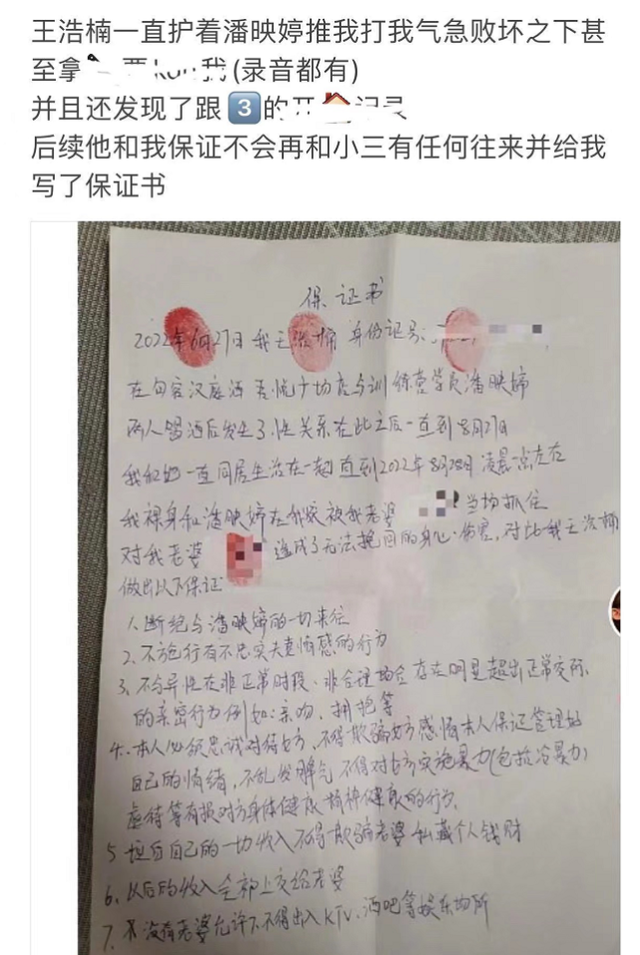 王浩楠一直护着潘映婷推我打我气急败坏之下甚
至拿 我(录音都有)
并且还发现了跟3的开🏠记录
后续他和我保证不会再和小三有任何往来并给我
写了保证书
保证书
2022年6月27日 我王浩楠 身份证号:
在句容汉庭酒 吾悦广场店与训练营学员潘映婷
两人喝酒后发生了性关系在此之后一直到8月27日
我和她一直同居生活在一起 直到2022年8月28日 凌晨一点左右
我裸身和潘映婷在我家被我老婆 当场抓住
对我老婆 造成了无法挽回的身心伤害,对此我王浩楠
做出以下保证
1、断绝与潘映婷的一切来往
2、不施行有不忠实夫妻情感的行为
3、不与异性在非正常时段、非合理场合存在明显超出正常交际
的亲密行为例如:亲吻、拥抱等
4、本人必须忠诚对待女方,不得欺骗女方感情本人保证管理好
自己的情绪,不乱发脾气不得对女方实施暴力(包括冷暴力)
虐待等有损对方身体健康精神健康的行为
5 坦白自己的一切收入不得欺骗老婆私藏个人钱财
6、以后的收入全部上交给老婆
7、没有老婆允许下不得出入KTV、酒吧等娱乐场所